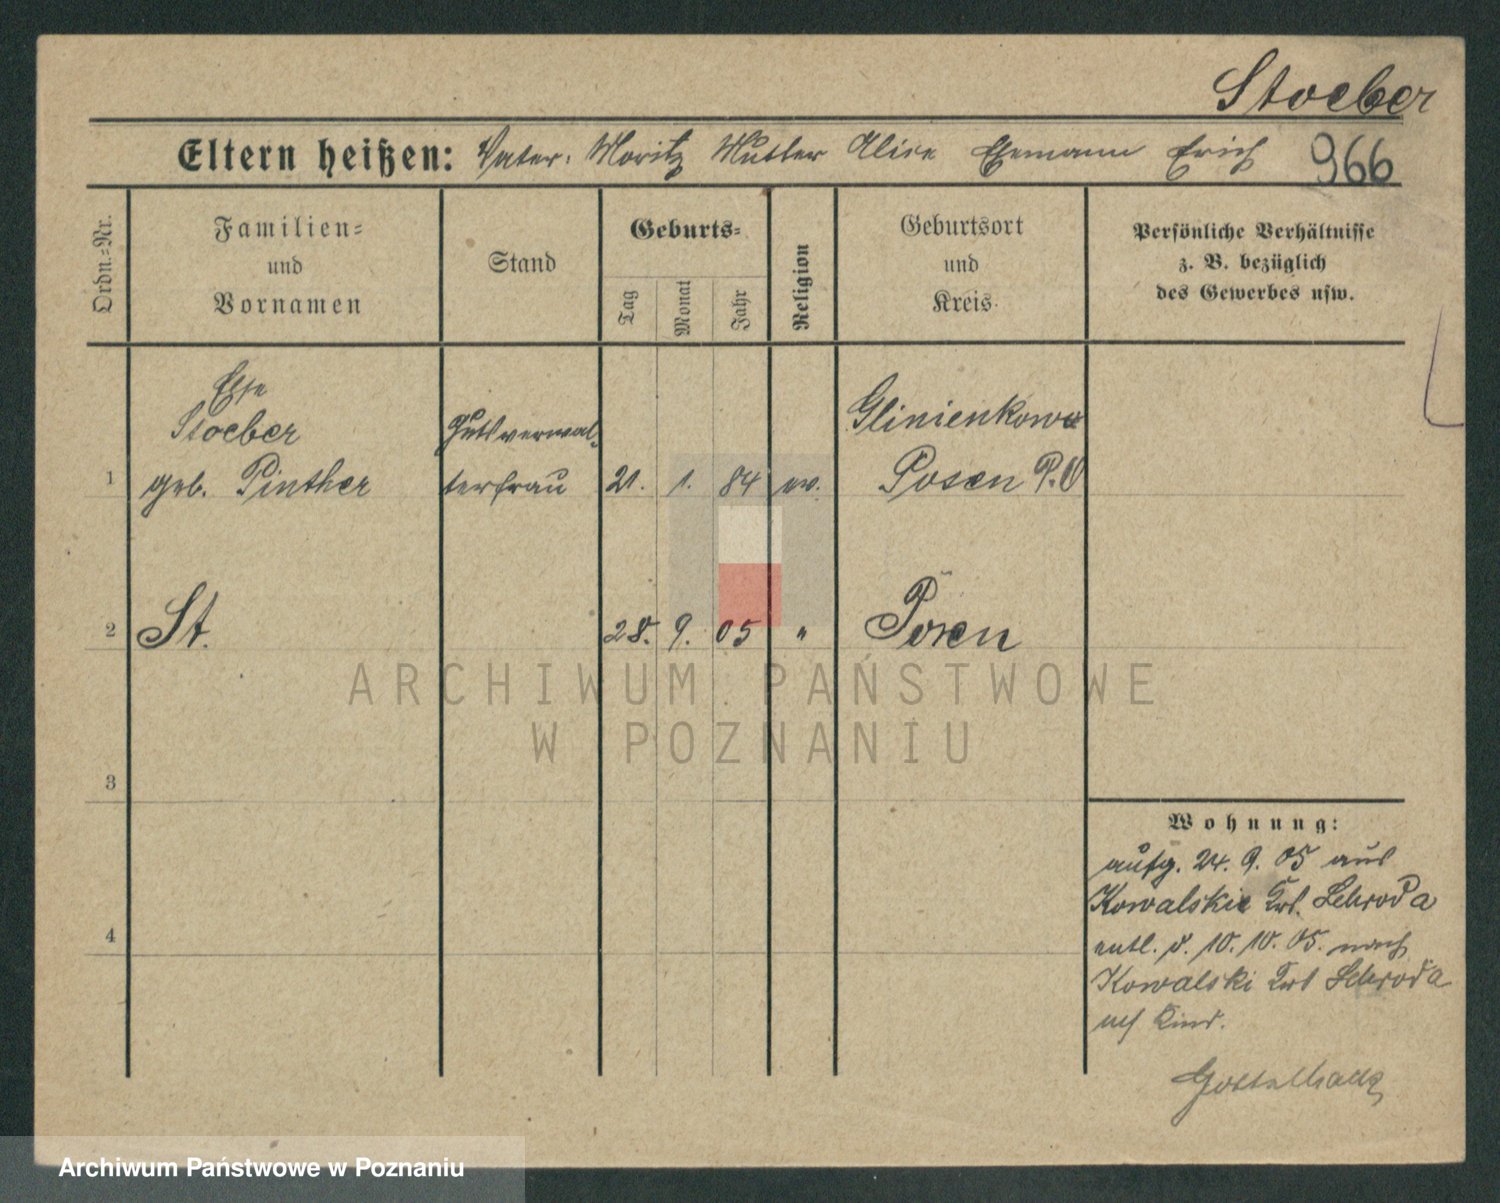 Stoeber
Eltern heißen: Vater: Moritz Mutter Alice Ehemann Erich 966
Ordn.=Nr.
Familien=
und
Vornamen
Stand
Geburts=
Tag
Monat
Jahr
Religion
Geburtsort
und
Kreis.
Persönliche Verhältnisse
z. B. bezüglich
des Gewerbes usw.
Else
Stoeber
geb. Pinther
Gutsverwal-
terfrau
1
21. 1. 84 ev.
Glinienkowo
Posen P. O
2
St.
28. 9. 05 "
Posen
3
4
Wohnung:
aufg. 24. 9. 05 aus
Kowalskie Krs. Schroda
entl. d. 10. 10. 05. nach
Kowalski Krs Schroda
mit Kind.
ARCHIWUM PAŃSTWOWE
W POZNANIU
Archiwum Państwowe w Poznaniu